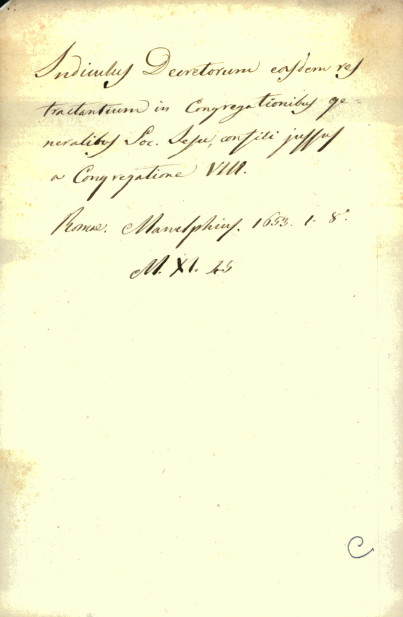 Indiculus Decretorum easdem res
tractantium in Congregationibus ge-
neralibus Soc. Jesu, confici jussus
a Congregatione VIII.
Romae. Manelphius. 1653. 1. 8°
M. XI. 25
C